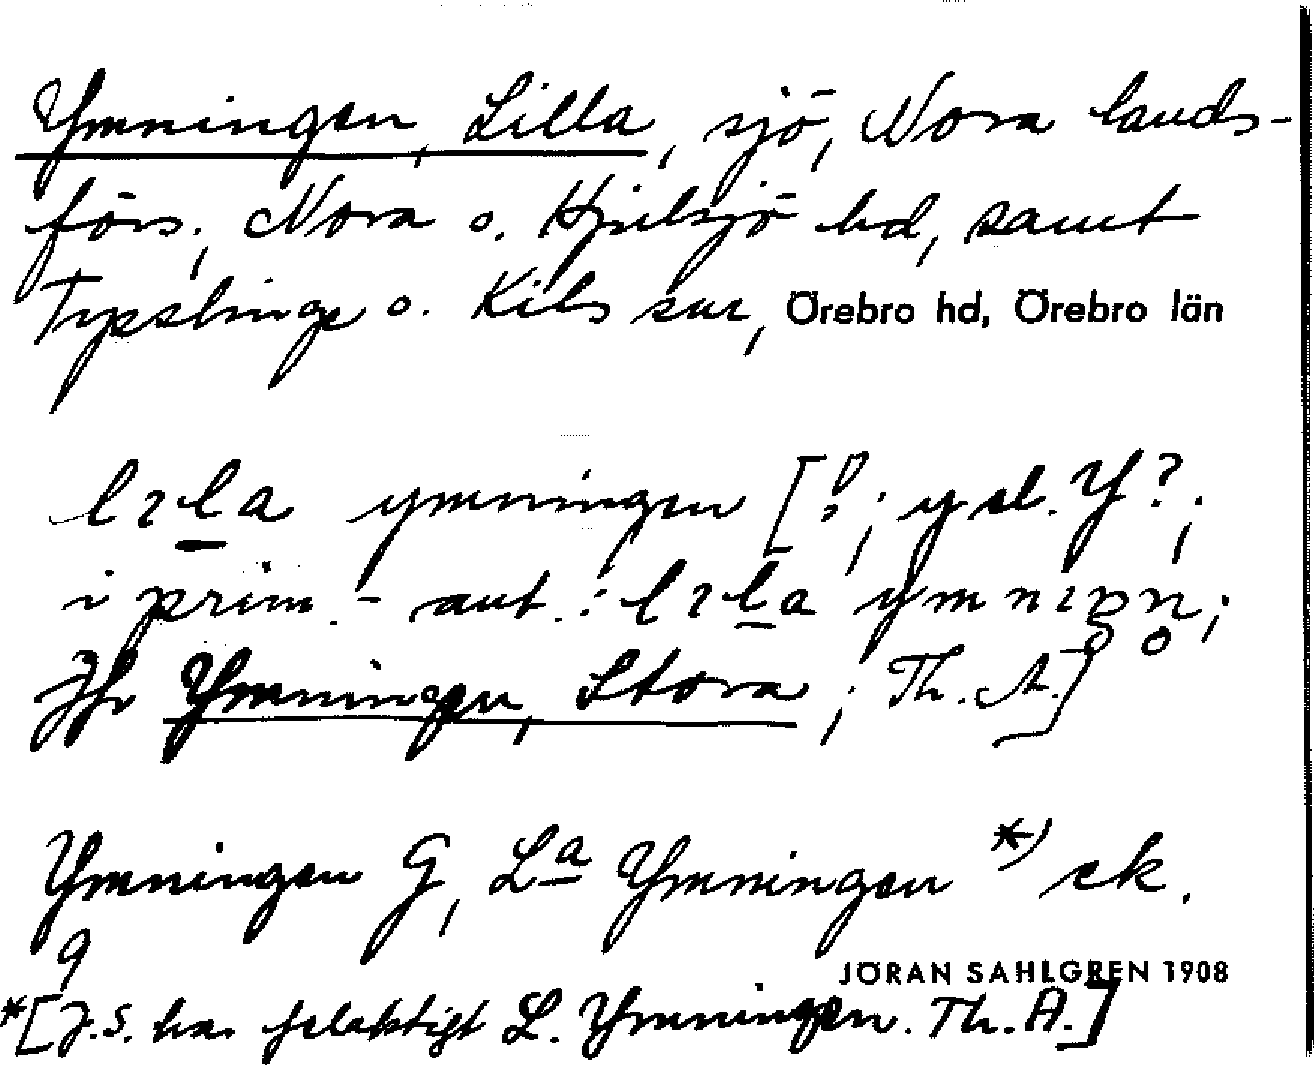 Ymningen, Lilla, sjö, Nora lands-
förs., Nora o. Hjulsjö hd, samt
Tysslinge o. Kils snr, Örebro hd, Örebro län
lɩla ymningen [?; y el. Y?;
i prim.-ant.: lɩla ymnɩŋn̥;
Jfr Ymningen, Stora; Th. A.]
Ymningen G, La Ymningen *) ek.
9
JÖRAN SAHLGREN 1908
*[J.S. har felaktigt L. Ymningen. Th. A.]